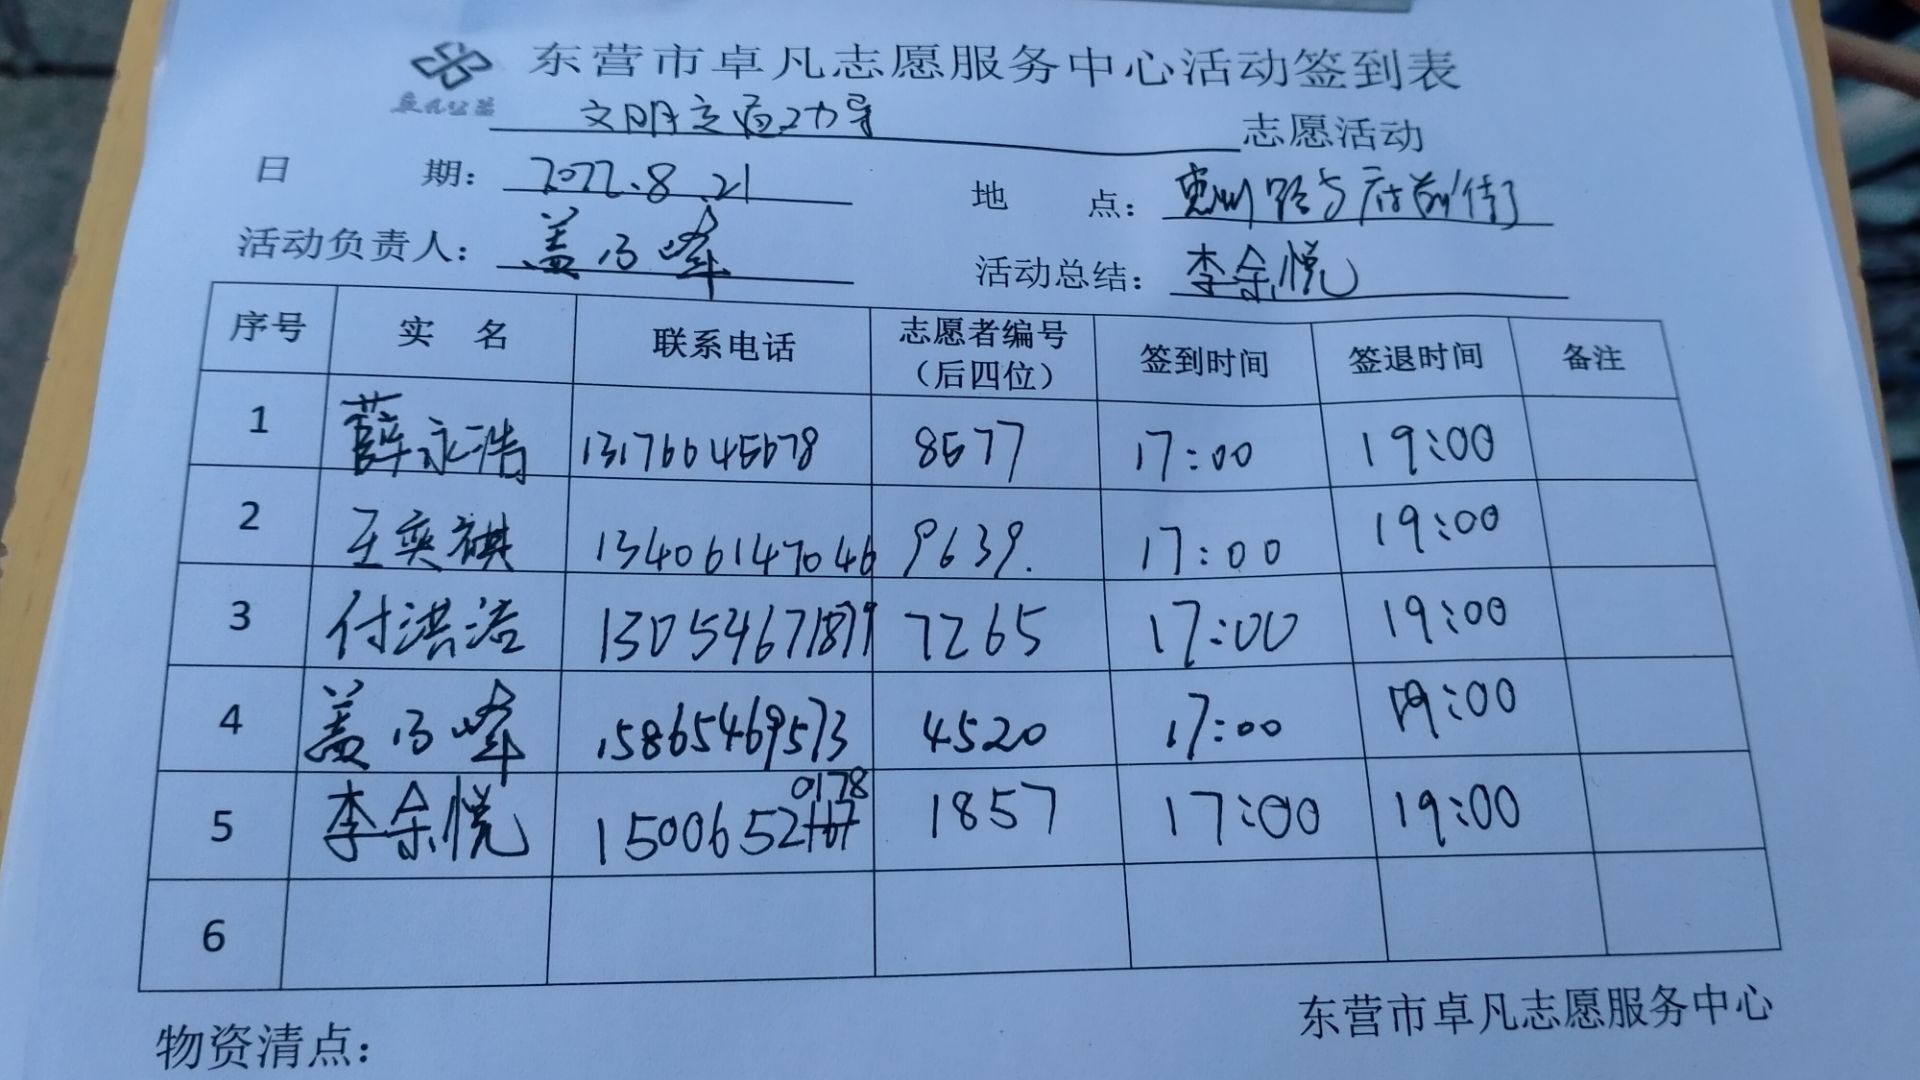 东营市卓凡志愿服务中心活动签到表
卓凡公益
文明交通劝导 志愿活动
日 期： 2022.8.21 地 点： 惠州路与府前街
活动负责人： 盖乃峰 活动总结： 李余悦
序号 实 名 联系电话 志愿者编号（后四位） 签到时间 签退时间 备注
1 薛永浩 13176645678 8577 17:00 19:00
2 王奕祺 13406147046 9639. 17:00 19:00
3 付洪浩 7265 17:00 19:00
4 盖乃峰 15865469573 4520 17:00 19:00
5 李余悦 15006520178 1857 17:00 19:00
6
东营市卓凡志愿服务中心
物资清点：